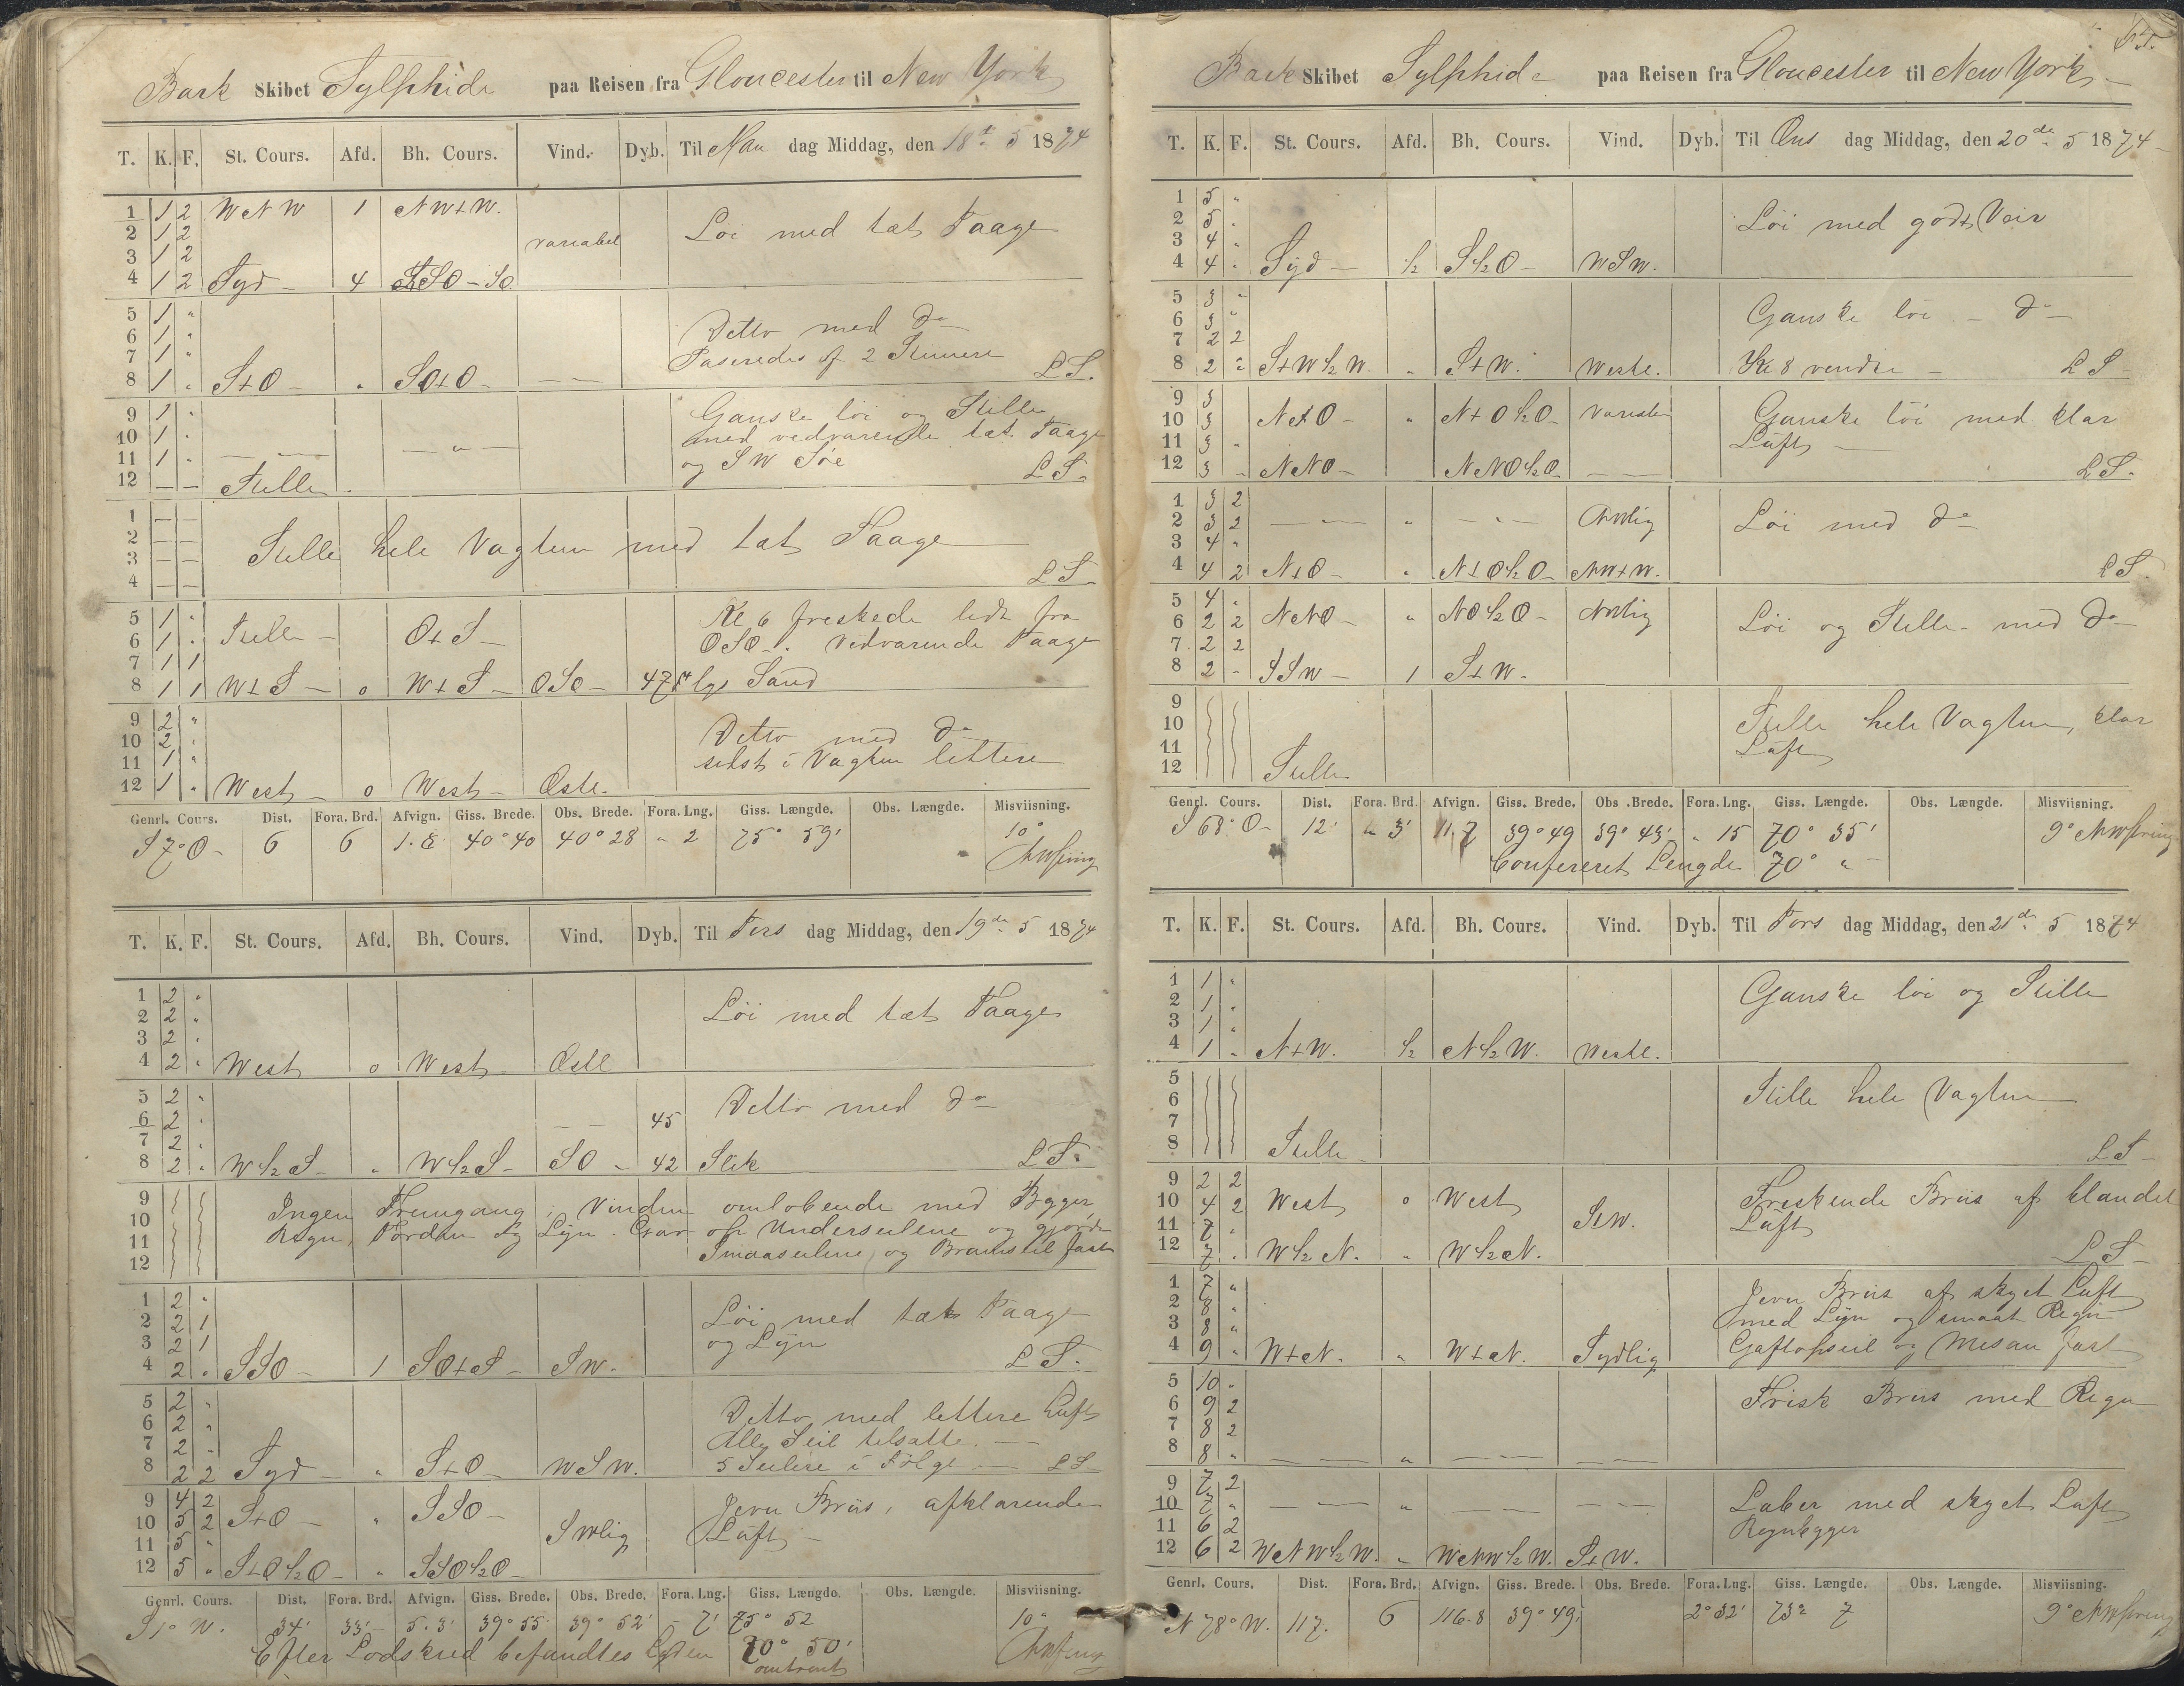 Bark Skibet Sylphide paa Reisen fra Gloucester til New York
T. K. F. St. Cours. Afd. Bh. Cours. Vind. Dyb. Til Man dag Middag, den 18de 5 1874
1 1 2 WNW 1 NW+W.
2 1 2 variabel Löi med tæt Taage
3 1 2
4 1 2 Syd 4 SSO - SO
5 1 "
6 1 " Detto med do
7 1 " Paseredes af 2 Stimere
8 1 " S+O " SO+O — L S.
9 1 " Ganske löi og Stille
10 1 " med vedvarende tæt Taage
11 1 " — — " — og SW Söe L S.
12 — — Stille
1 — —
2 — — Stille hele Vagten med tæt Taage
3 — —
4 — — L S.
5 1 " Kl 6 freskede lidt fra
6 1 " Stille O+S OSO. vedvarende Taage
7 1 1
8 1 1 W+S o W+S OSO 47 Sand
9 2 "
10 2 " Detto med do
11 1 " sidst i Vagten lettere
12 1 " West o West Oste.
Genrl. Cours. Dist. Fora. Brd. Afvign. Giss. Brede. Obs. Brede. Fora. Lng. Giss. Længde. Obs. Længde. Misviisning.
S 7° O 6 6 1.8 40° 40 40° 28 " 2 75° 59' 10°
NWsring
T. K. F. St. Cours. Afd. Bh. Cours. Vind. Dyb. Til Tirs dag Middag, den 19de 5 1874
1 2 "
2 2 " Löi med tæt Taage
3 2 "
4 2 " West o West Oste
5 2 " Detto med do
6 2 " — 45
7 2 "
8 2 " W½S " W½S SO 42 Slik L S.
9 Ingen Fremgang, Vinden omlobende med Bygger,
10 Regn, Torden og Lÿn. Gav op Underseilene og gjorde
11 Smaaseilene og Bramseil fast
12
1 2 "
2 2 1 Löi med tæt Taage
3 2 1 og Lÿn
4 2 " SSO 1 SO+S SW. L S.
5 2 " Detto med lettere Luft
6 2 " Alle Seil tilsatte.
7 2 "
8 2 2 Syd " S+O WSW. 5 Seilere i Fölge L S
9 4 2 Jevn Briis, afklarende
10 5 2 S+O " SSO SWlig Luft
11 5 "
12 5 " S+O½O " SSO½O
Genrl. Cours. Dist. Fora. Brd. Afvign. Giss. Brede. Obs. Brede. Fora. Lng. Giss. Længde. Obs. Længde. Misviisning.
S 1° W. 34' 33' 5.3' 39° 55' 39° 52' - 7' 75° 52 10°
Efter Lodskud befandtes Lgden 70° 50' NWsring
omtrent
Bark Skibet Sylphide paa Reisen fra Gloucester til New York
T. K. F. St. Cours. Afd. Bh. Cours. Vind. Dyb. Til Ons dag Middag, den 20de 5 1874
1 5 "
2 5 " Löi med godt Veir
3 4 "
4 4 " Syd ½ S½O WSW.
5 3 " Ganske löi - do
6 3 "
7 2 2
8 2 " S+W½W. " S+W. Westl. Kl 8 vendte L S
9 3
10 3 N+O " N+O½O Variabl Ganske löi med klar
11 3 " Luft
12 3 - NNO NNO½O — L S.
1 3 2
2 3 2 — " — " — NWlig Löi med do
3 4 "
4 4 2 N+O " N+O½O NW+W. L S.
5 4 "
6 2 2 NNO " NO½O NWlig Löi og Stille med do
7 2 2
8 2 - SSW 1 S+W.
9
10 Stille hele Vagten, klar
11 Luft
12 Stille
Genrl. Cours. Dist. Fora. Brd. Afvign. Giss. Brede. Obs. Brede. Fora. Lng. Giss. Længde. Obs. Længde. Misviisning.
S 68° O 12' 3' 11.7 39° 49 39° 43' " 15 70° 35' 9° NWsring
Confereret Lengde 70° "
T. K. F. St. Cours. Afd. Bh. Cours. Vind. Dyb. Til Tors dag Middag, den 21de 5 1874
1 1 " Ganske löi og Stille
2 1 "
3 1 "
4 1 " N+W. ½ N½W. Westl.
5
6 Stille hele Vagten
7
8 Stille L S
9 2 2
10 4 2 West o West Freskende Briis af blandet
11 7 " SW. Luft
12 7 " W½N. " W½N. L S
1 7 " Jevn Briis af skyet Luft
2 8 " med Lÿn og smaat Regn
3 8 "
4 9 " W+N. " W+N. Sydlig Gaftopseil og Mesan fast
5 10 "
6 9 2 Frisk Briis med Regn
7 8 2
8 8 " — " —
9 7 2
10 7 " — " — Laber med skyet Luft
11 6 2 Regnbygger
12 6 2 WNW½W. " WNW½W. S+W.
Genrl. Cours. Dist. Fora. Brd. Afvign. Giss. Brede. Obs. Brede. Fora. Lng. Giss. Længde. Obs. Længde. Misviisning.
N 78° W. 117. 6 116.8 39° 49' 2° 32' 73° 7 9° NWsring